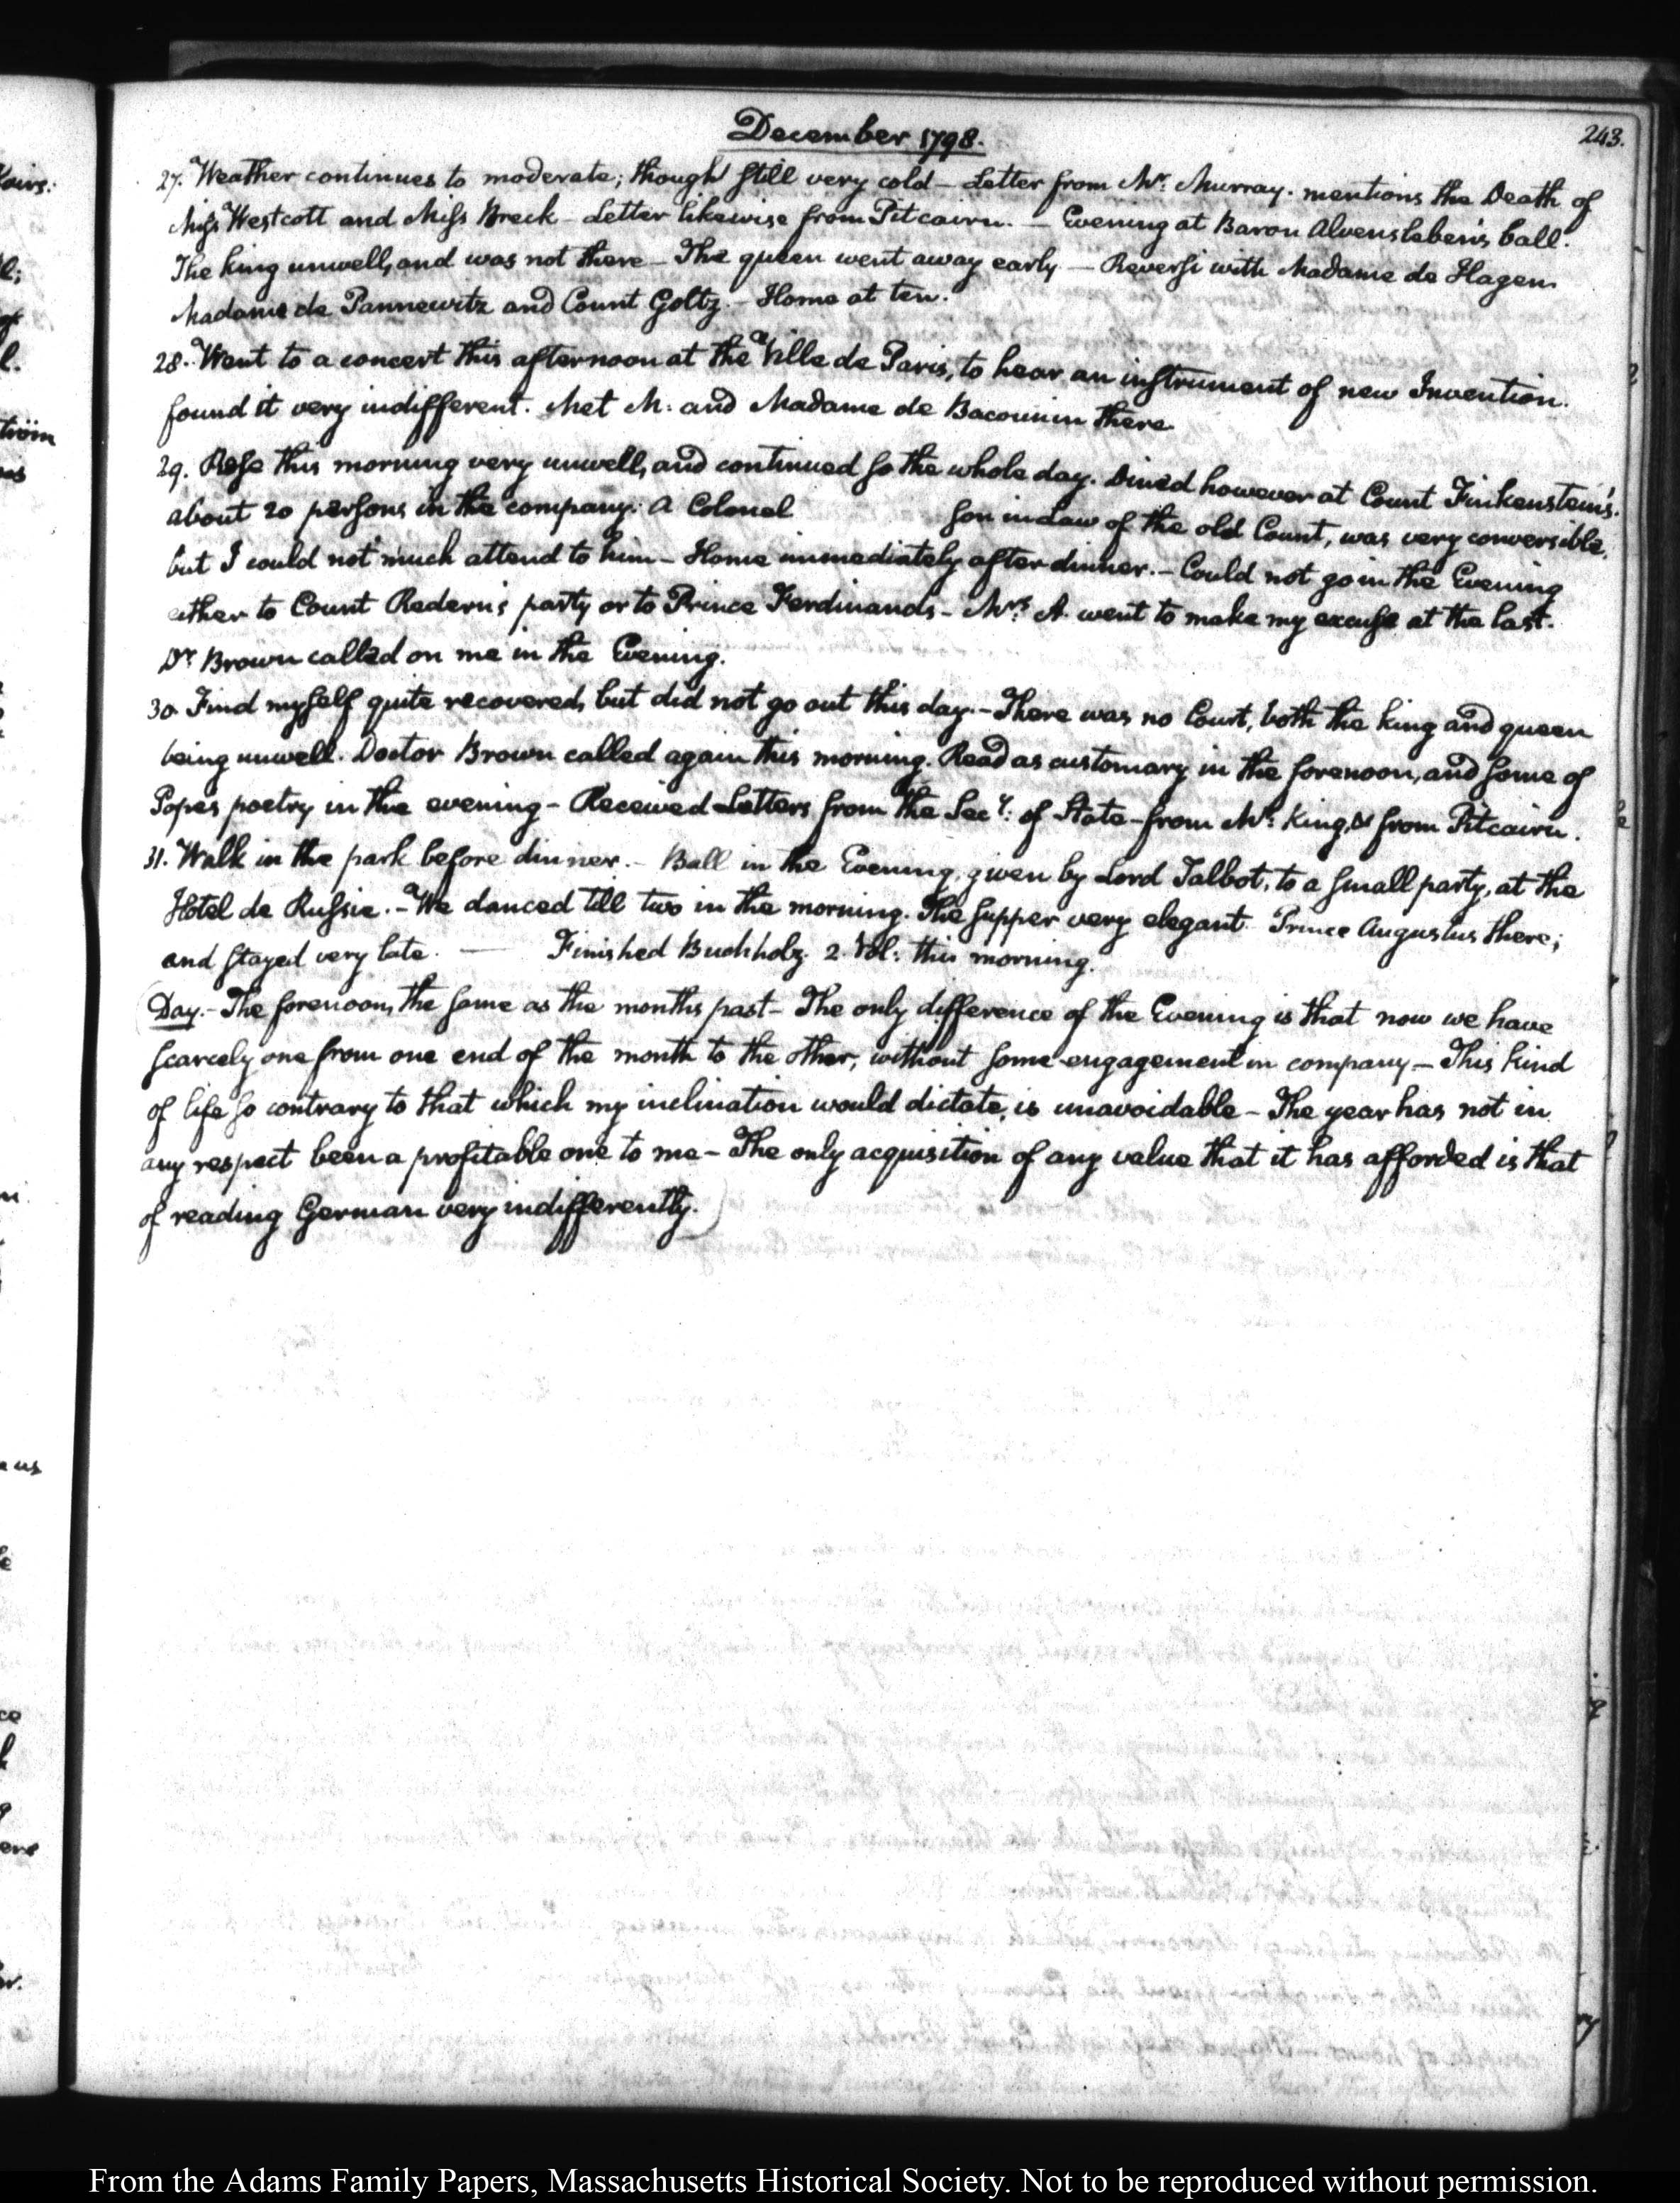 December 1798.
243.
27. Weather continues to moderate; though still very cold – Letter from Mr: Murray. mentions the Death of
Miss Westcott and Miss Breck – Letter likewise from Pitcairn. — Evening at Baron Alvensleben's ball.
The king unwell, and was not there – The queen went away early – Reversi with Madame de Hagen
Madame de Pannewitz and Count Goltz. – Home at ten.
28. Went to a concert this afternoon at the Ville de Paris, to hear an instrument of new Invention.
found it very indifferent. Met M: and Madame de Bacounin there.
29. Rose this morning very unwell, and continued so the whole day. Dined however at Count Finkenstein's.
about 20 persons in the company: A Colonel son in law of the old Count, was very conversible,
but I could not much attend to him – Home immediately after dinner. – Could not go in the Evening
either to Count Redern's party or to Prince Ferdinands – Mrs: A. went to make my excuse at the last.
Dr Brown called on me in the Evening.
30. Find myself quite recovered, but did not go out this day. – There was no Court, both the king and queen
being unwell. Doctor Brown called again this morning. Read as customary in the forenoon, and some of
Popes poetry in the evening – Received Letters from the Secy: of State – from Mr: King, & from Pitcairn.
31. Walk in the park before dinner. – Ball in the Evening, given by Lord Talbot, to a small party, at the
Hotel de Russie. – We danced till two in the morning. The supper very elegant. Prince Augustus there;
and stayed very late. — Finished Buchholz. 2. Vol: this morning.
(Day. – The forenoon, the same as the months past – The only difference of the Evening is that now we have
scarcely one from one end of the month to the other, without some engagement in company – This kind
of life so contrary to that which my inclination would dictate, is unavoidable – The year has not in
any respect been a profitable one to me – The only acquisition of any value that it has afforded is that
of reading German very indifferently.)
From the Adams Family Papers, Massachusetts Historical Society. Not to be reproduced without permission.